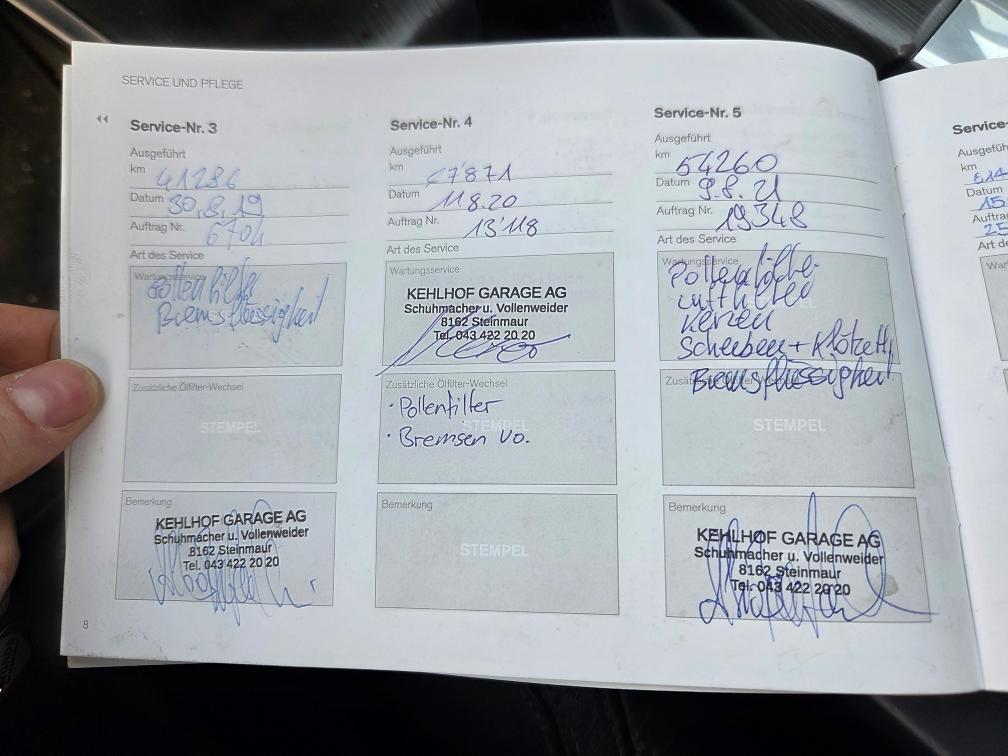 SERVICE UND PFLEGE
Service-Nr. 3
Ausgeführt
km 41286
Datum 30.8.19
Auftrag Nr.
Art des Service
Wartungsservice
Pollenfilter
Bremsflüssigkeit
Zusätzliche Ölfilter-Wechsel
STEMPEL
Bemerkung
KEHLHOF GARAGE AG
Schuhmacher u. Vollenweider
8162 Steinmaur
Tel. 043 422 20 20
8
Service-Nr. 4
Ausgeführt
km
Datum 11.8.20
Auftrag Nr. 13'118
Art des Service
Wartungsservice
KEHLHOF GARAGE AG
Schuhmacher u. Vollenweider
8162 Steinmaur
Tel. 043 422 20 20
Zusätzliche Ölfilter-Wechsel
STEMPEL
· Pollenfilter
· Bremsen vo.
Bemerkung
STEMPEL
Service-Nr. 5
Ausgeführt
km 54260
Datum 9.8.21
Auftrag Nr. 19348
Art des Service
Wartungsservice
Pollenfilter
Luftfilter
Kerzen
Scheiben + Klötze
Bremsflüssigkeit
STEMPEL
Bemerkung
KEHLHOF GARAGE AG
Schuhmacher u. Vollenweider
8162 Steinmaur
Tel. 043 422 20 20
Service-
Ausgeführ
km 614
Datum 15.
Auftra
25
Art de
War